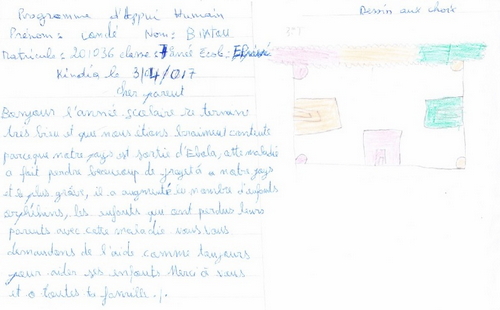 Programme d'Appui Humain
Prénom: Condé Nom: Bintou
Matricule: 201036 classe: 7 année Ecole:
Kindia le 3/04/017
cher parent
Bonjour l'année scolaire se termine
tres bien et que nous étions vraiment contents
parceque notre pays est sortie d'Ebola, cette maladie
a fait perdre beaucoup de projet à notre pays
et le plus grave, il a augmenté le nombre d'enfants
orphelins, les enfants qui ont perdus leurs
parents avec cette maladie. vous vous
demandons de l'aide comme toujours
pour aider ses enfants Merci à vous
et a toutes ta famille ./.
Dessin aux choix